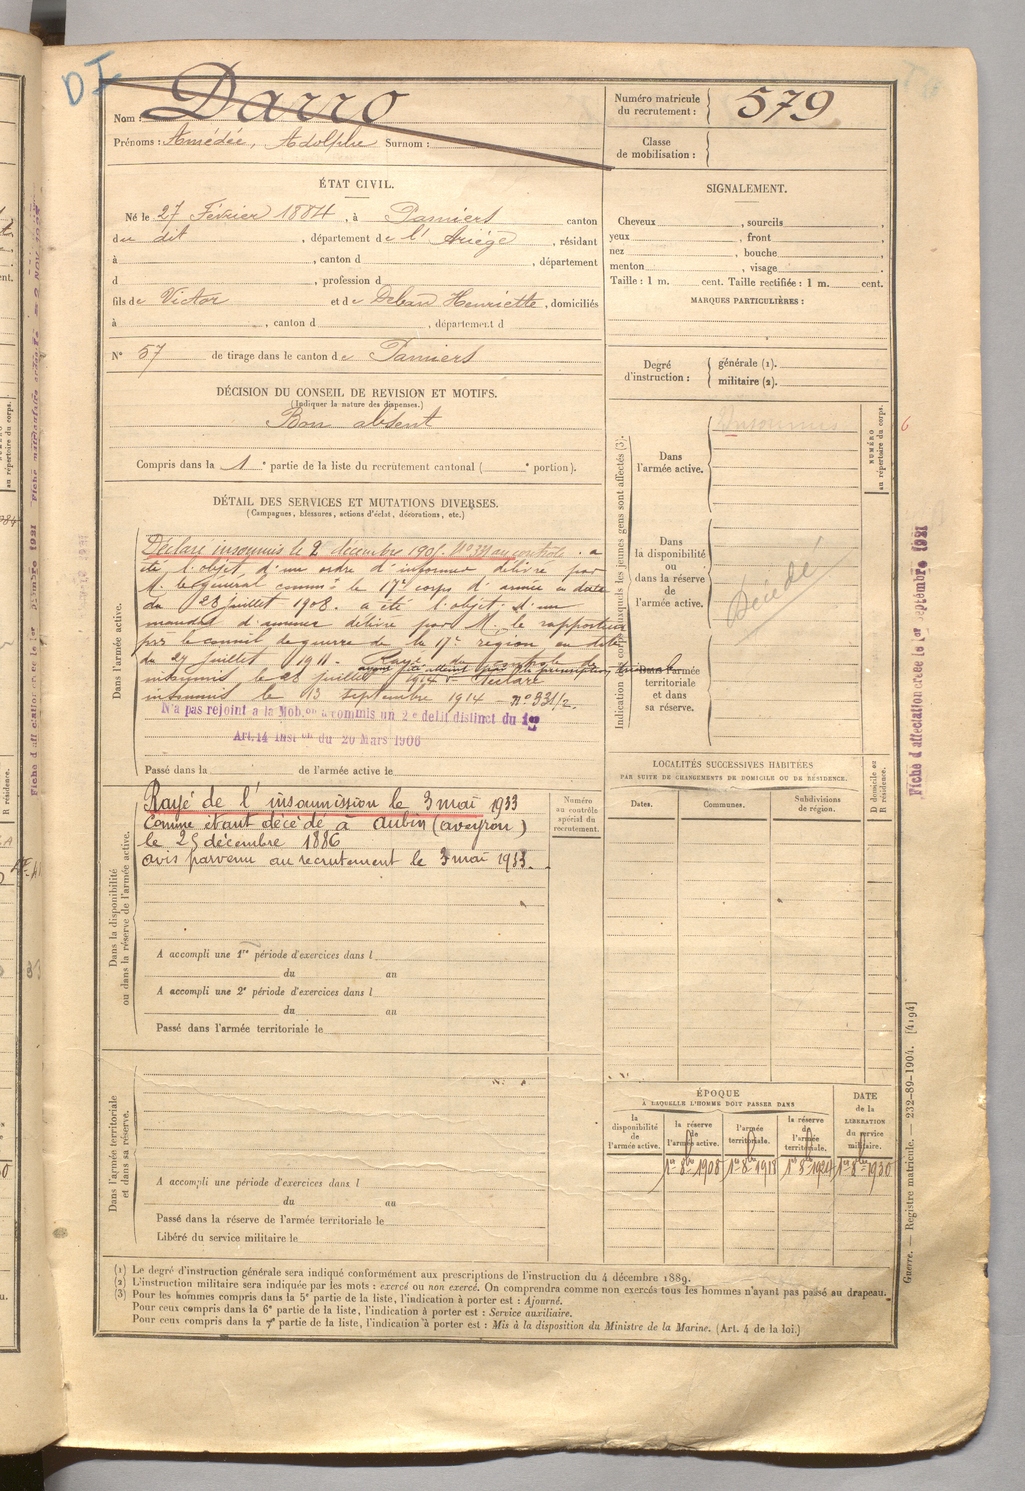 DI
Nom : Darro
Prénoms : Amédée, Adolphe Surnom :
Numéro matricule du recrutement : 579
Classe de mobilisation :
ÉTAT CIVIL.
Né le 27 Février 1884, à Pamiers canton
du dit, département de l'Ariège, résidant
à , canton d , département
d , profession d
fils de Victor et de Deban Henriette, domiciliés
à , canton d , département d
N° 57 de tirage dans le canton de Pamiers
SIGNALEMENT.
Cheveux , sourcils ,
yeux , front ,
nez , bouche ,
menton , visage ,
Taille : 1 m. cent. Taille rectifiée : 1 m. cent.
MARQUES PARTICULIÈRES :
Degré d'instruction : générale (1).
militaire (2).
DÉCISION DU CONSEIL DE REVISION ET MOTIFS.
(Indiquer la nature des dispenses.)
Bon absent
Compris dans la 1e partie de la liste du recrutement cantonal ( e portion).
DÉTAIL DES SERVICES ET MUTATIONS DIVERSES.
(Campagnes, blessures, actions d'éclat, décorations, etc.)
Dans l'armée active.
Déclaré insoumis le 2 décembre 1905. N° 331 au contrôle. a
été l'objet d'un ordre d'informer délivré par
M. le général commt le 17e corps d'armée en date
du 28 juillet 1908. a été l'objet d'un
mandat d'amener délivré par M. le rapporteur
près le conseil de guerre de la 17e région en date
du 27 juillet 1911. Rayé du contrôle de
insoumis le 28 juillet 1914 Déclaré
insoumis le 13 septembre 1914 n° 331/2.
N'a pas rejoint a la Mob.on a commis un 2e delit distinct du 1er
Art. 14 Inst on du 20 Mars 1906
Passé dans la de l'armée active le
Dans la disponibilité ou dans la réserve de l'armée active.
Rayé de l'insoumission le 3 mai 1933
Comme étant décédé à Aubin (Aveyron)
le 25 décembre 1886
avis parvenu au recrutement le 3 mai 1933.
Numéro au contrôle spécial du recrutement.
A accompli une 1re période d'exercices dans l
du au
A accompli une 2e période d'exercices dans l
du au
Passé dans l'armée territoriale le
Dans l'armée territoriale et dans sa réserve.
A accompli une période d'exercices dans l
du au
Passé dans la réserve de l'armée territoriale le
Libéré du service militaire le
Indication des corps auxquels les jeunes gens sont affectés (3).
Dans l'armée active.
Insoumis
Dans la disponibilité ou dans la réserve de l'armée active.
Décédé
Dans l'armée territoriale et dans sa réserve.
NUMÉRO au répertoire du corps.
6
LOCALITÉS SUCCESSIVES HABITÉES
PAR SUITE DE CHANGEMENTS DE DOMICILE OU DE RÉSIDENCE.
Dates. Communes. Subdivisions de région.
D domicile ou R résidence.
ÉPOQUE
À LAQUELLE L'HOMME DOIT PASSER DANS
la disponibilité de l'armée active.
la réserve de l'armée active.
l'armée territoriale.
la réserve de l'armée territoriale.
DATE de la LIBÉRATION du service militaire.
1er 8bre 1908 1er 8bre 1918 1er 8bre 1924 1er 8bre 1930
(1) Le degré d'instruction générale sera indiqué conformément aux prescriptions de l'instruction du 4 décembre 1889.
(2) L'instruction militaire sera indiquée par les mots : exercé ou non exercé. On comprendra comme non exercés tous les hommes n'ayant pas passé au drapeau.
(3) Pour les hommes compris dans la 5e partie de la liste, l'indication à porter est : Ajourné.
Pour ceux compris dans la 6e partie de la liste, l'indication à porter est : Service auxiliaire.
Pour ceux compris dans la 7e partie de la liste, l'indication à porter est : Mis à la disposition du Ministre de la Marine. (Art. 4 de la loi.)
Fiche d'affectation créée le 1er Septembre 1921
Guerre. — Registre matricule. — 232-89-1904. [4194]